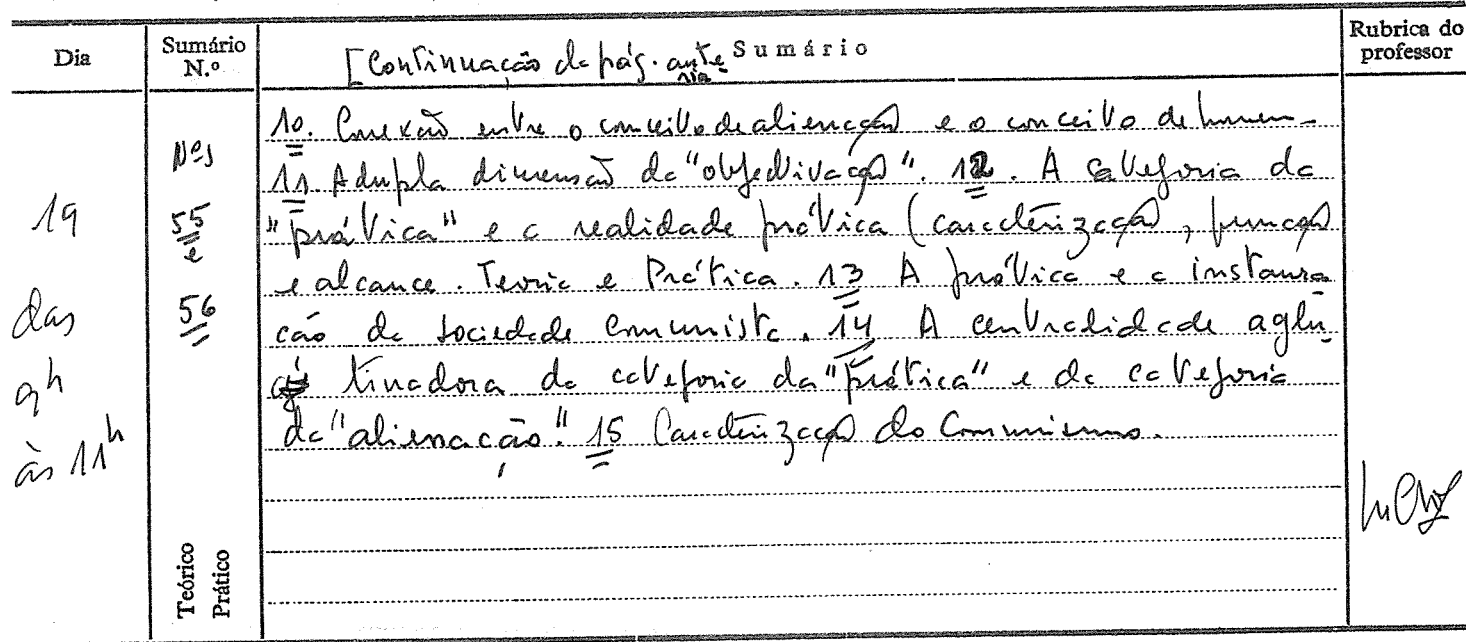 Dia
Sumário N.º
[Continuação da pág. anterior
Sumário
Rubrica do professor
19
das
9h
às 11h
Nºs
55
e
56
Teórico
Prático
10. Conexão entre o conceito de alienação e o conceito de homem.
11. A dupla dimensão da "objectivação". 12. A categoria da
"prática" e a realidade prática (caracterização, função
e alcance. Teoria e Prática. 13 A prática e a instaura
ção da sociedade Comunista. 14 A centralidade aglu
tinadora da categoria da "prática" e da categoria
da "alienação". 15 Caracterização do Comunismo.